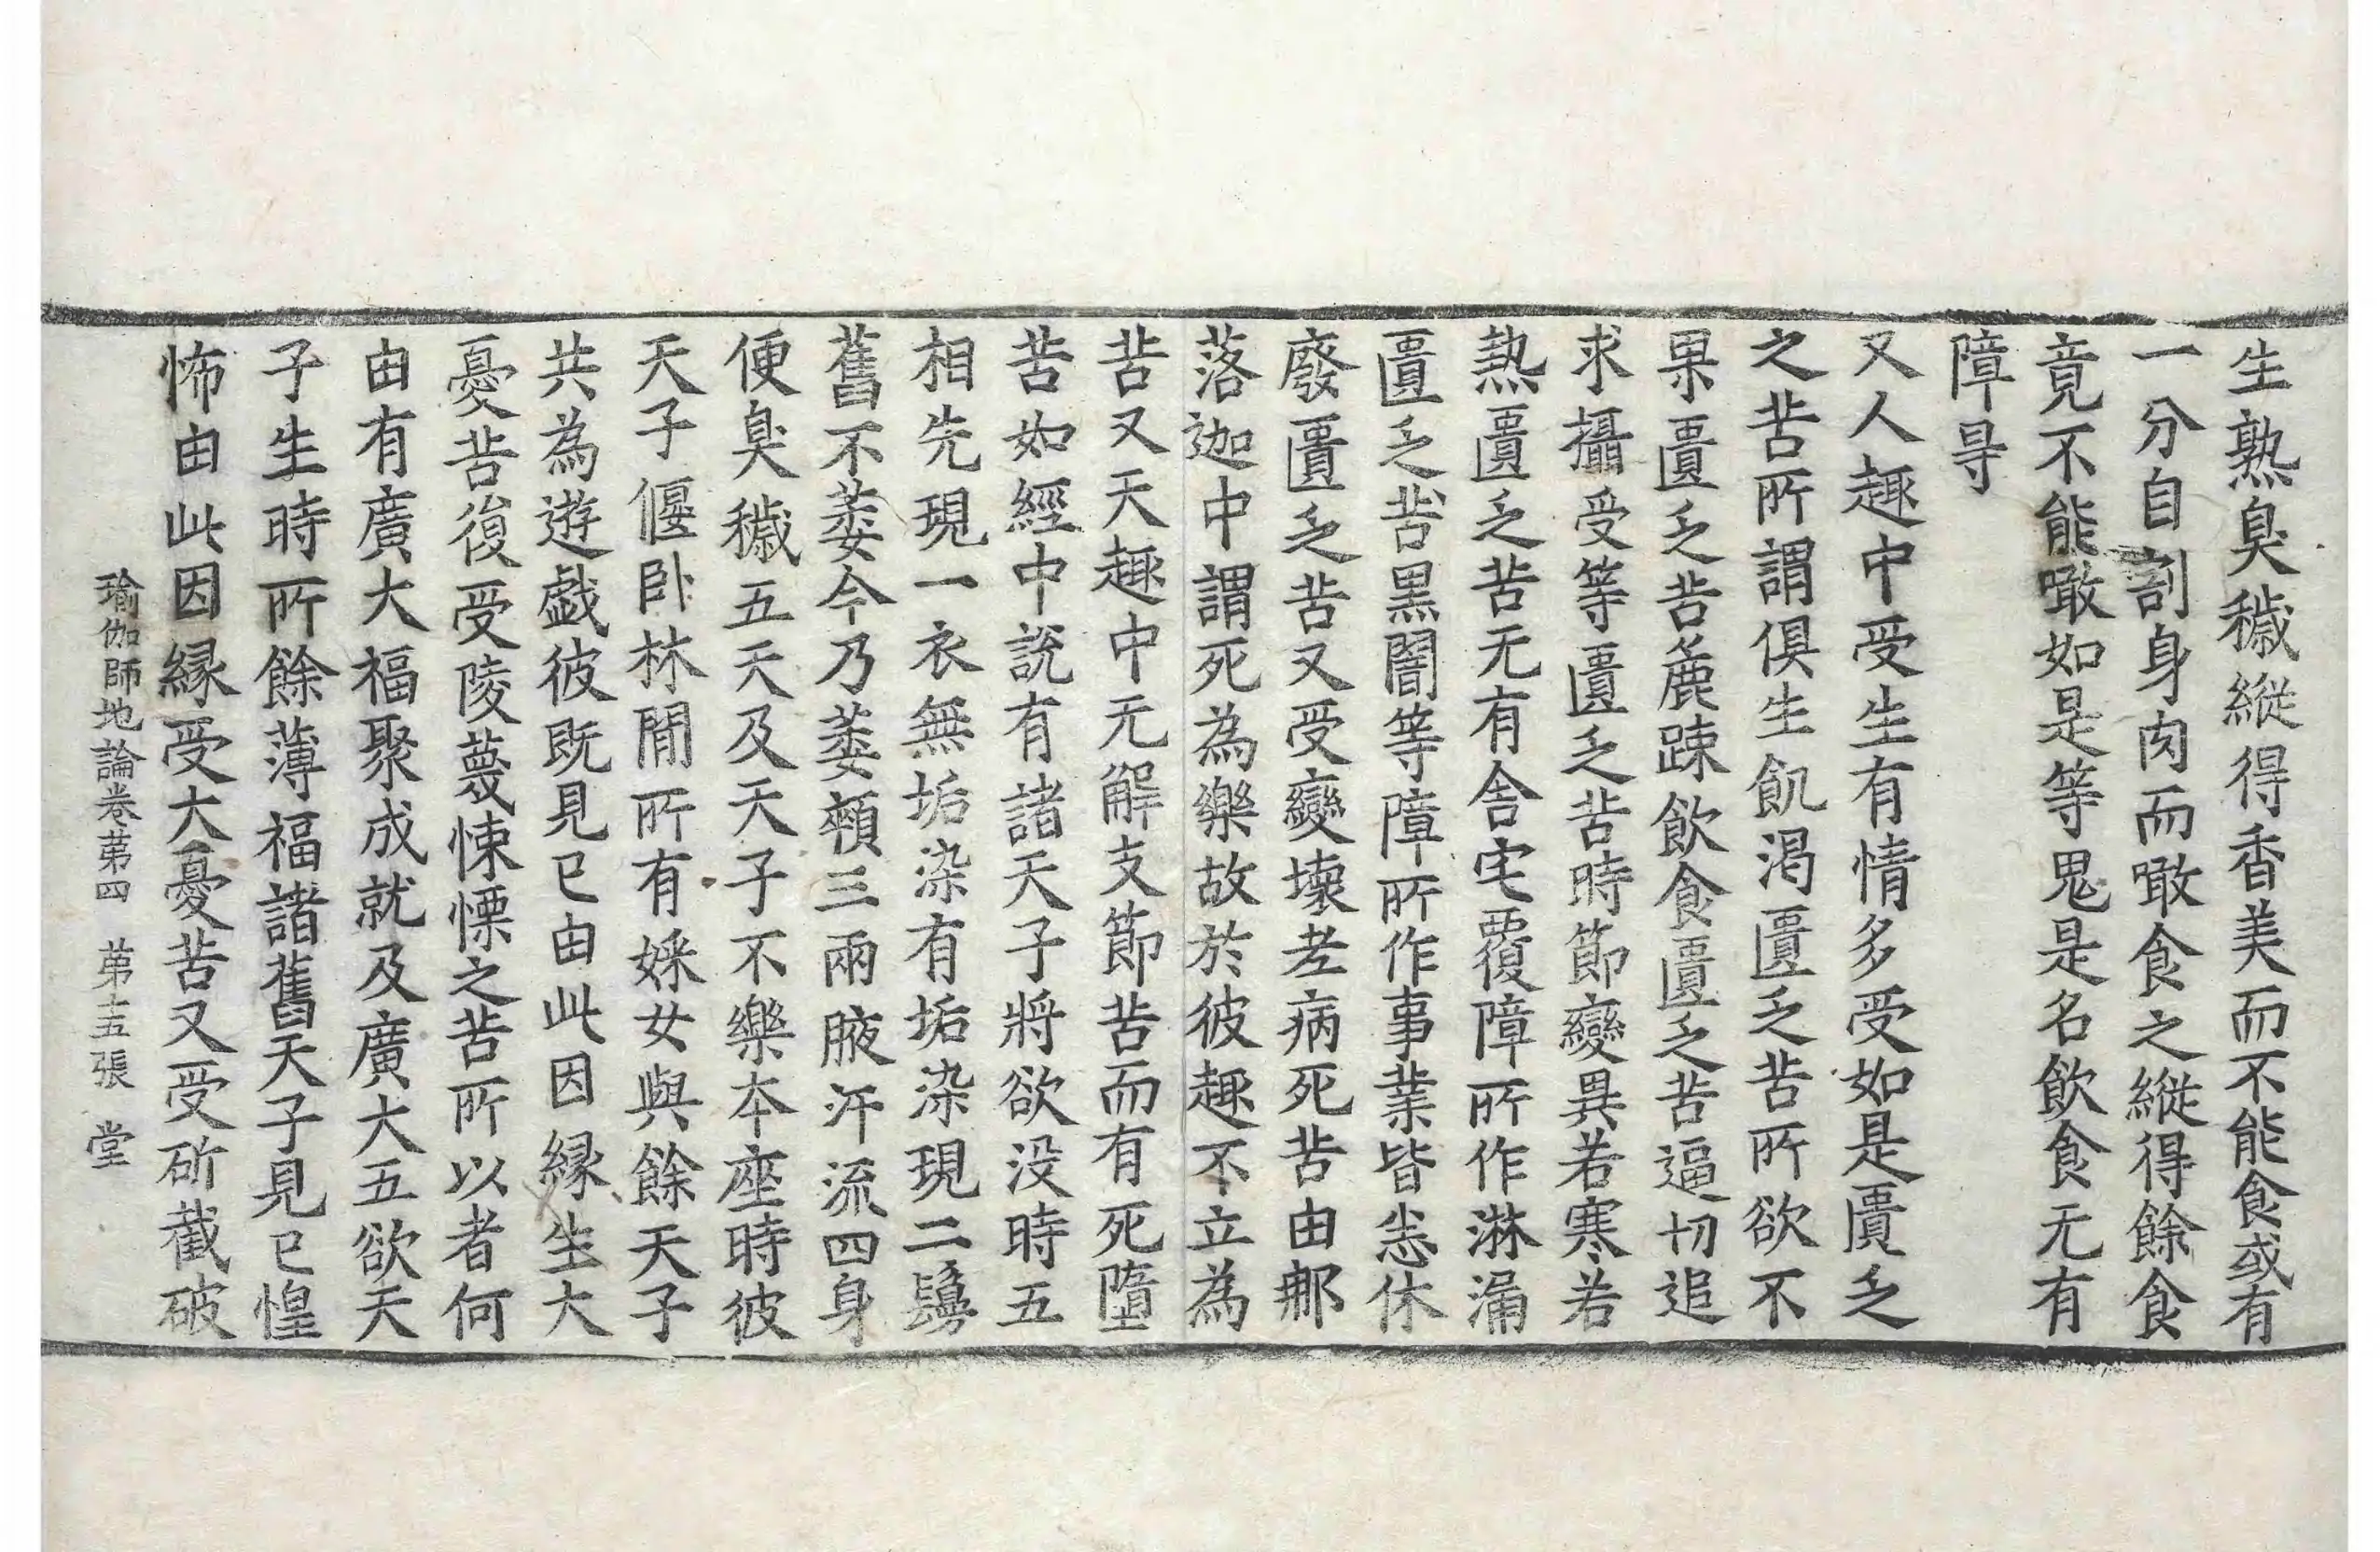 生熟臭穢縱得香美而不能食或有
一分自割身肉而噉食之縱得餘食
竟不能噉如是等鬼是名飲食无有
障㝵
又人趣中受生有情多受如是匱乏
之苦所謂俱生飢渴匱乏之苦所欲不
果匱乏之苦麁踈飲食匱乏之苦逼切追
求攝受等匱乏之苦時節變異若寒若
熱匱乏之苦无有舍宅覆障所作淋漏
匱乏之苦黑闇等障所作事業皆悉休
廢匱乏之苦又受變壞老病死苦由那
落迦中謂死為樂故於彼趣不立為
苦又天趣中无解支節苦而有死墮
苦如經中說有諸天子將欲没時五
相先現一衣無垢染有垢染現二鬘
舊不萎今乃萎顇三兩腋汗流四身
便臭穢五天及天子不樂本座時彼
天子偃卧林間所有婇女與餘天子
共為遊戲彼既見已由此因緣生大
憂苦復受陵蔑悚慄之苦所以者何
由有廣大福聚成就及廣大五欲天
子生時所餘薄福諸舊天子見已惶
怖由此因緣受大憂苦又受斫截破
瑜伽師地論卷苐四 苐十五張 堂